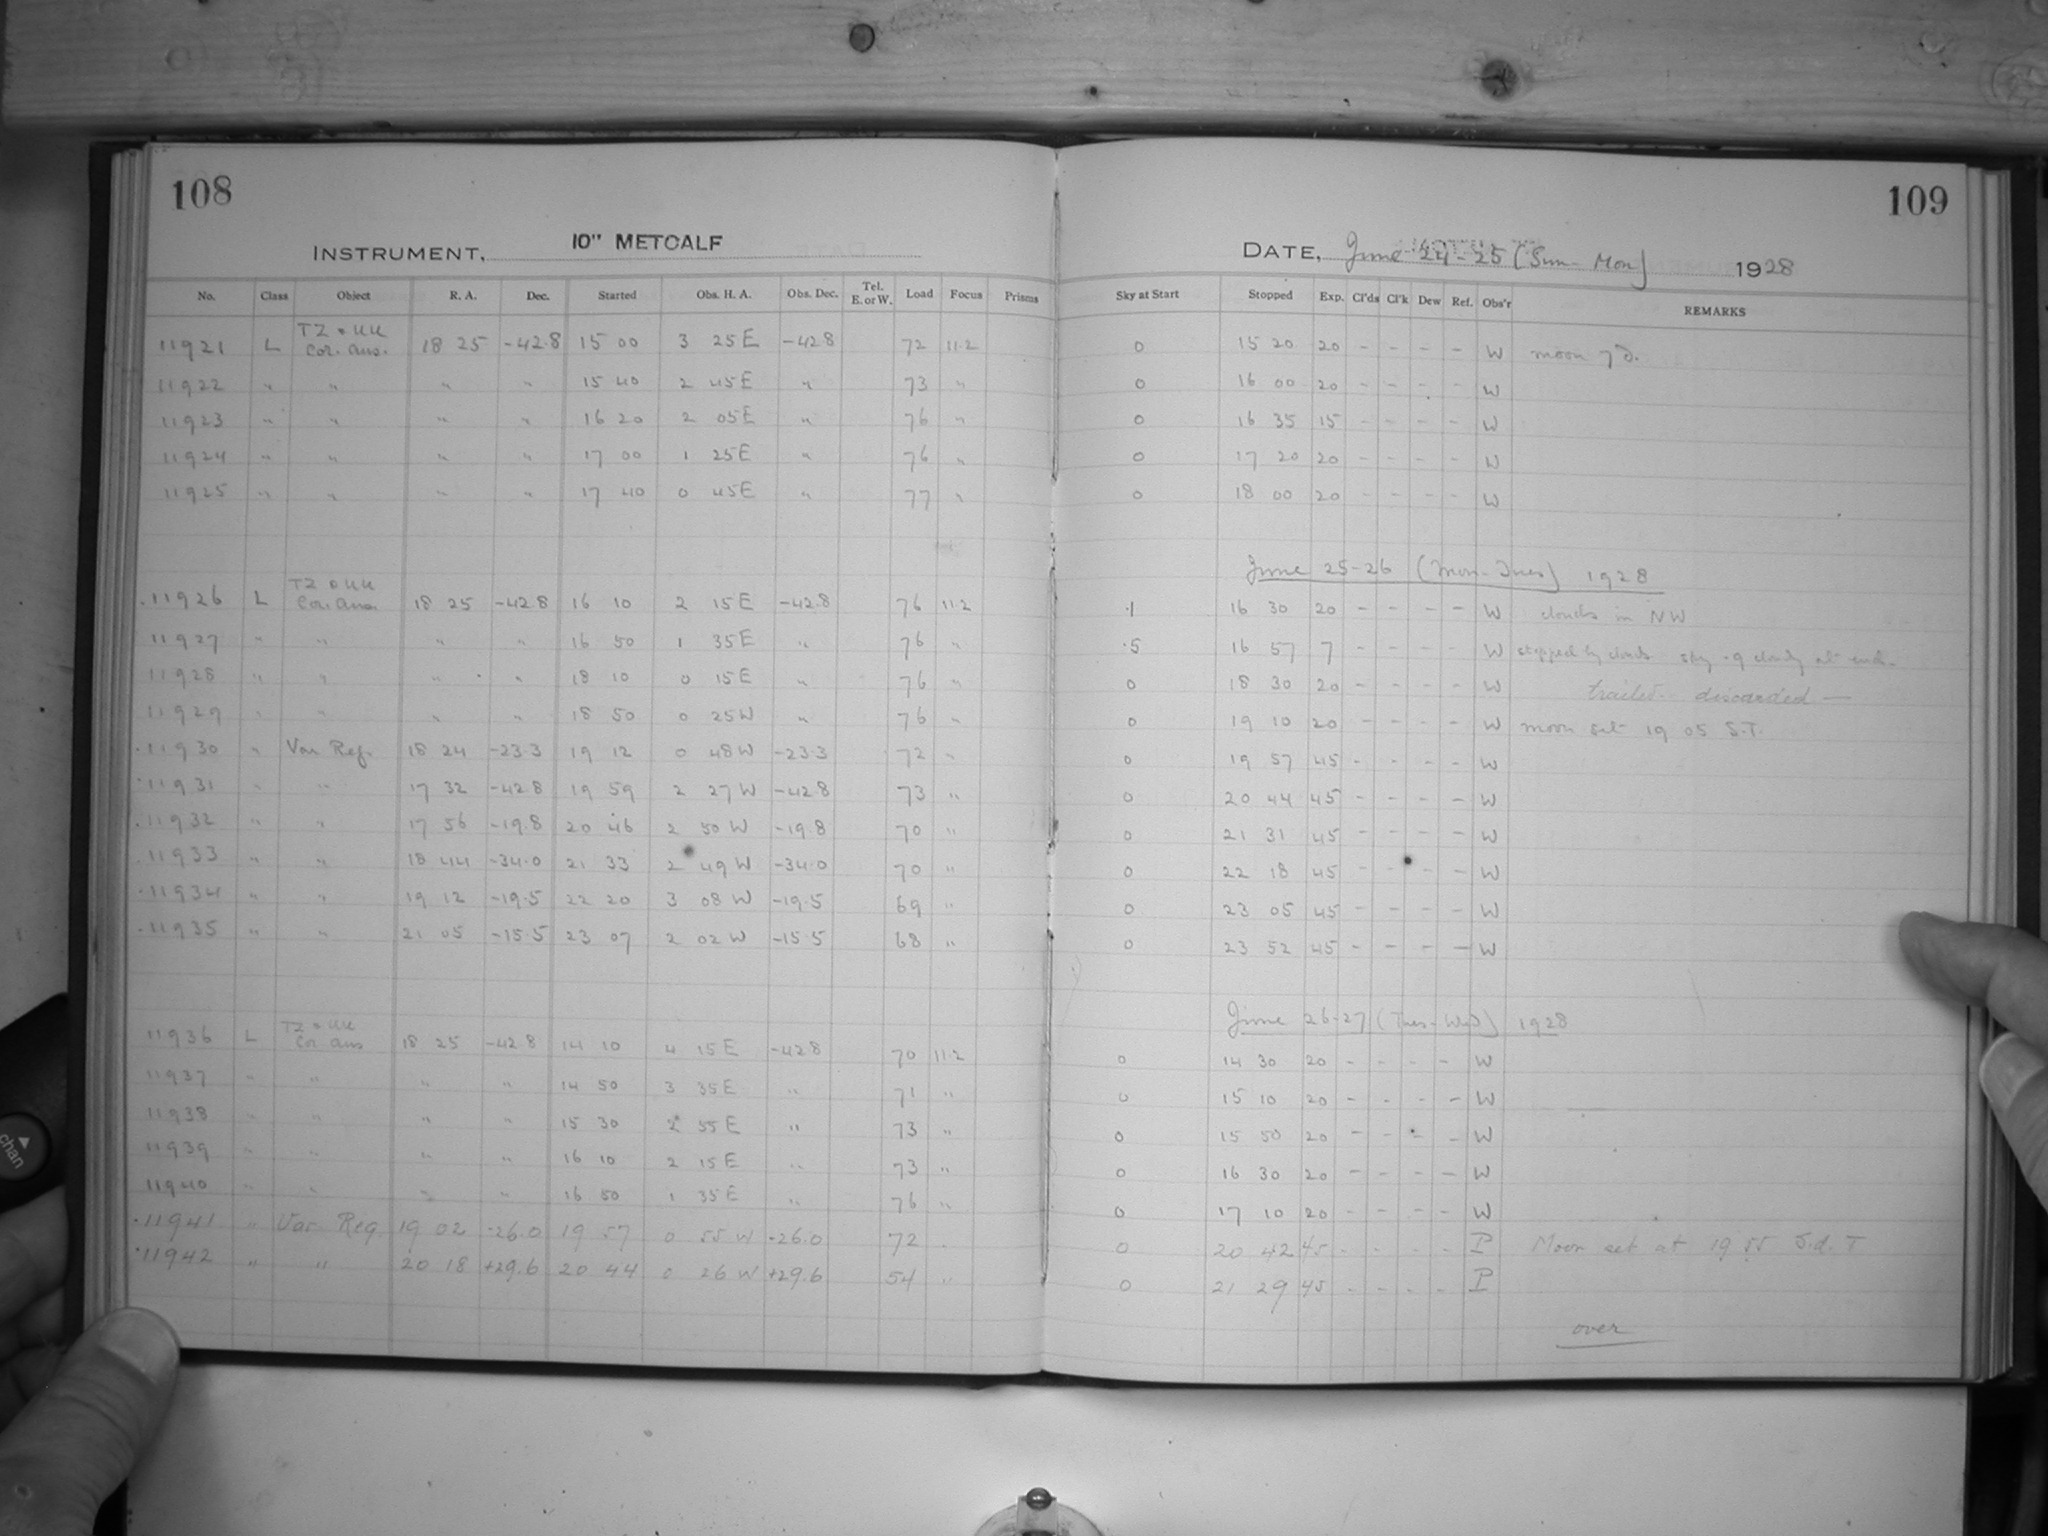 108
INSTRUMENT, 10" METCALF
No. Class Object R. A. Dec. Started Obs. H. A. Obs. Dec. Tel. E. or W. Load Focus Prisms
11921 L TZ + UU Cor. Aus. 18 25 -42.8 15 00 3 25 E -42.8 72 11.2
11922 " " " " 15 40 2 45 E " 73 "
11923 " " " " 16 20 2 05 E " 76 "
11924 " " " " 17 00 1 25 E " 76 "
11925 " " " " 17 40 0 45 E " 77 "
11926 L TZ + UU Cor. Aus. 18 25 -42.8 16 10 2 15 E -42.8 76 11.2
11927 " " " " 16 50 1 35 E " 76 "
11928 " " " " 18 10 0 15 E " 76 "
11929 " " " " 18 50 0 25 W " 76 "
11930 " Var Reg. 18 24 -23.3 19 12 0 48 W -23.3 72 "
11931 " " 17 32 -42.8 19 59 2 27 W -42.8 73 "
11932 " " 17 56 -19.8 20 46 2 50 W -19.8 70 "
11933 " " 18 44 -34.0 21 33 2 49 W -34.0 70 "
11934 " " 19 12 -19.5 22 20 3 08 W -19.5 69 "
11935 " " 21 05 -15.5 23 07 2 02 W -15.5 68 "
11936 L TZ + UU Cor Aus 18 25 -42.8 14 10 4 15 E -42.8 70 11.2
11937 " " " " 14 50 3 35 E " 71 "
11938 " " " " 15 30 2 55 E " 73 "
11939 " " " " 16 10 2 15 E " 73 "
11940 " " " " 16 50 1 35 E " 76 "
11941 " Var. Reg 19 02 -26.0 19 57 0 55 W -26.0 72 "
11942 " " 20 18 +29.6 20 44 0 26 W +29.6 54 "
109
DATE, June 24-25 (Sun-Mon) 1928
Sky at Start Stopped Exp. Cl'ds Cl'k Dew Ref. Obs'r REMARKS
0 15 20 20 - - - - W moon 7 d.
0 16 00 20 - - - - W
0 16 35 15 - - - - W
0 17 20 20 - - - - W
0 18 00 20 - - - - W
June 25-26 (Mon-Tues) 1928
.1 16 30 20 - - - - W clouds in NW
.5 16 57 7 - - - - W stopped by clouds sky .9 cloudy at end.
0 18 30 20 - - - - W trailed - discarded -
0 19 10 20 - - - - W moon set 19 05 S.T.
0 19 57 45 - - - - W
0 20 44 45 - - - - W
0 21 31 45 - - - - W
0 22 18 45 - - - - W
0 23 05 45 - - - - W
0 23 52 45 - - - - W
June 26-27 (Tues-Wed) 1928
0 14 30 20 - - - - W
0 15 10 20 - - - - W
0 15 50 20 - - - - W
0 16 30 20 - - - - W
0 17 10 20 - - - - W
0 20 42 45 - - - - P Moon set at 19 55 S.d. T
0 21 29 45 - - - - P
over
chan